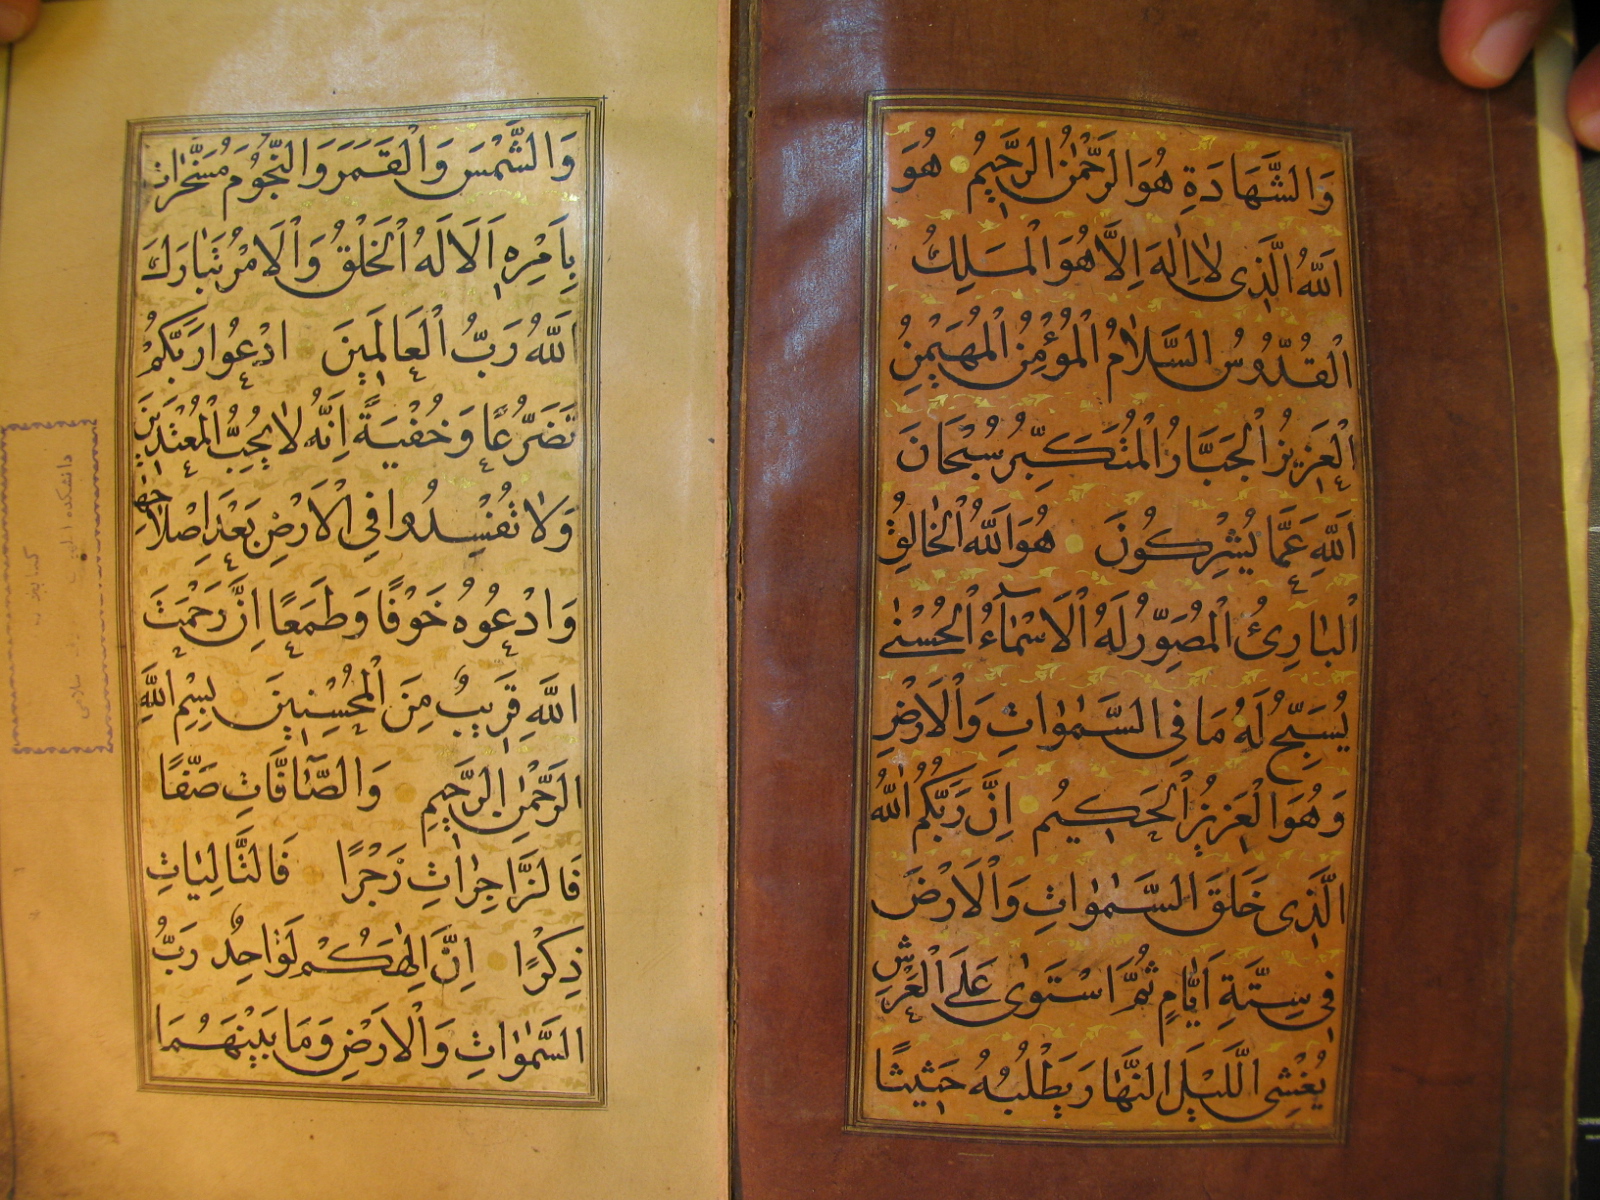 وَالشَّهَادَةِ هُوَ الرَّحْمٰنُ الرَّحِيمُ هُوَ
اَللّٰهُ الَّذِى لَا اِلٰهَ اِلَّا هُوَ الْمَلِكُ
الْقُدُّوسُ السَّلَامُ الْمُؤْمِنُ الْمُهَيْمِنُ
الْعَزِيزُ الْجَبَّارُ الْمُتَكَبِّرُ سُبْحَانَ
اَللّٰهِ عَمَّا يُشْرِكُونَ هُوَ اللّٰهُ الْخَالِقُ
الْبَارِئُ الْمُصَوِّرُ لَهُ الْاَسْمَاءُ الْحُسْنٰى
يُسَبِّحُ لَهُ مَا فِى السَّمٰوَاتِ وَالْاَرْضِ
وَهُوَ الْعَزِيزُ الْحَكِيمُ اِنَّ رَبَّكُمُ اللّٰهُ
الَّذِى خَلَقَ السَّمٰوَاتِ وَالْاَرْضَ
فِى سِتَّةِ اَيَّامٍ ثُمَّ اسْتَوٰى عَلَى الْعَرْشِ
يُغْشِى اللَّيْلَ النَّهَارَ يَطْلُبُهُ حَثِيثًا
وَالشَّمْسَ وَالْقَمَرَ وَالنُّجُومَ مُسَخَّرَاتٍ
بِاَمْرِهِ اَلَا لَهُ الْخَلْقُ وَالْاَمْرُ تَبَارَكَ
اَللّٰهُ رَبُّ الْعَالَمِينَ ادْعُوا رَبَّكُمْ
تَضَرُّعًا وَخُفْيَةً اِنَّهُ لَا يُحِبُّ الْمُعْتَدِينَ
وَلَا تُفْسِدُوا فِى الْاَرْضِ بَعْدَ اِصْلَاحِهَا
وَادْعُوهُ خَوْفًا وَطَمَعًا اِنَّ رَحْمَتَ
اللّٰهِ قَرِيبٌ مِنَ الْمُحْسِنِينَ بِسْمِ اللّٰهِ
الرَّحْمٰنِ الرَّحِيمِ وَالصَّافَّاتِ صَفًّا
فَالزَّاجِرَاتِ زَجْرًا فَالتَّالِيَاتِ
ذِكْرًا اِنَّ اِلٰهَكُمْ لَوَاحِدٌ رَبُّ
السَّمٰوَاتِ وَالْاَرْضِ وَمَا بَيْنَهُمَا
دانشکده